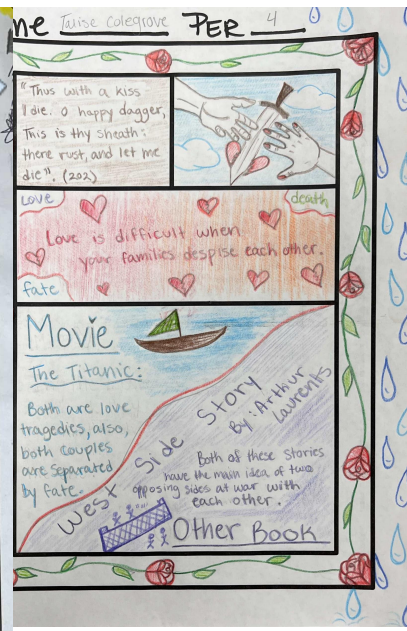 me Tarise Colegrove PER 4
"Thus with a kiss
I die. O happy dagger,
This is thy sheath:
there rust, and let me
die". (202)
Love
death
Love is difficult when
your families despise each other.
fate
Movie
The Titanic:
Both are love
tragedies, also,
both couples
are separated
by fate.
West Side Story
By: Arthur
Laurents
Both of these stories
have the main idea of two
opposing sides at war with
each other.
Other Book